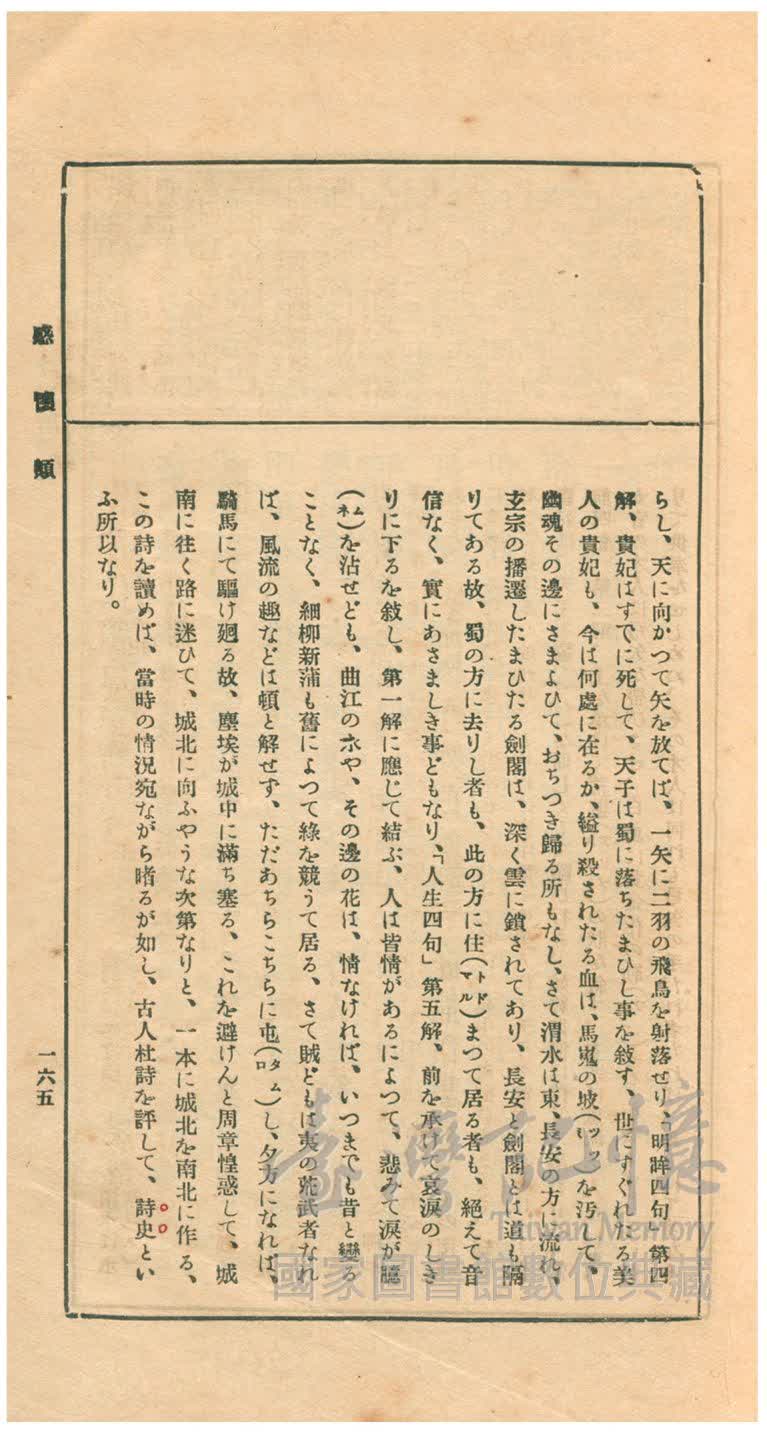 らし、天に向かつて矢を放てば、一矢に二羽の飛鳥を射落せり、「明眸四句」第四
解、貴妃はすでに死して、天子は蜀に落ちたまひし事を敍す、世にすぐれたる美
人の貴妃も、今は何處に在るか、縊り殺されたる血は、馬嵬の坡(ツツミ)を汚して、
幽魂その邊にさまよひて、おちつき歸る所もなし、さて渭水は東、長安の方に流れ、
玄宗の播遷したまひたる劍閣は、深く雲に鎖されてあり、長安と劍閣とは道も隔
りてある故、蜀の方に去りし者も、此の方に住(トドマル)まつて居る者も、絕えて音
信なく、實にあさましき事どもなり、「人生四句」第五解、前を承けて哀淚のしき
りに下るを敍し、第一解に應じて結ぶ、人は皆情があるによつて、悲みて淚が臆
(ムネ)を沾せども、曲江の水や、その邊の花は、情なければ、いつまでも昔と變る
ことなく、細柳新蒲も舊によつて綠を競うて居る、さて賊どもは夷の荒武者なれ
ば、風流の趣などは頓と解せず、ただあちらこちらに屯(タムロ)し、夕方になれば、
騎馬にて驅け廻る故、塵埃が城中に滿ち塞る、これを避けんと周章惶惑して、城
南に往く路に迷ひて、城北に向ふやうな次第なりと、一本に城北を南北に作る、
この詩を讀めば、當時の情況宛ながら睹るが如し、古人杜詩を評して、詩史とい
ふ所以なり。
感懷類
一六五
臺灣記憶
Taiwan Memory
國家圖書館數位典藏